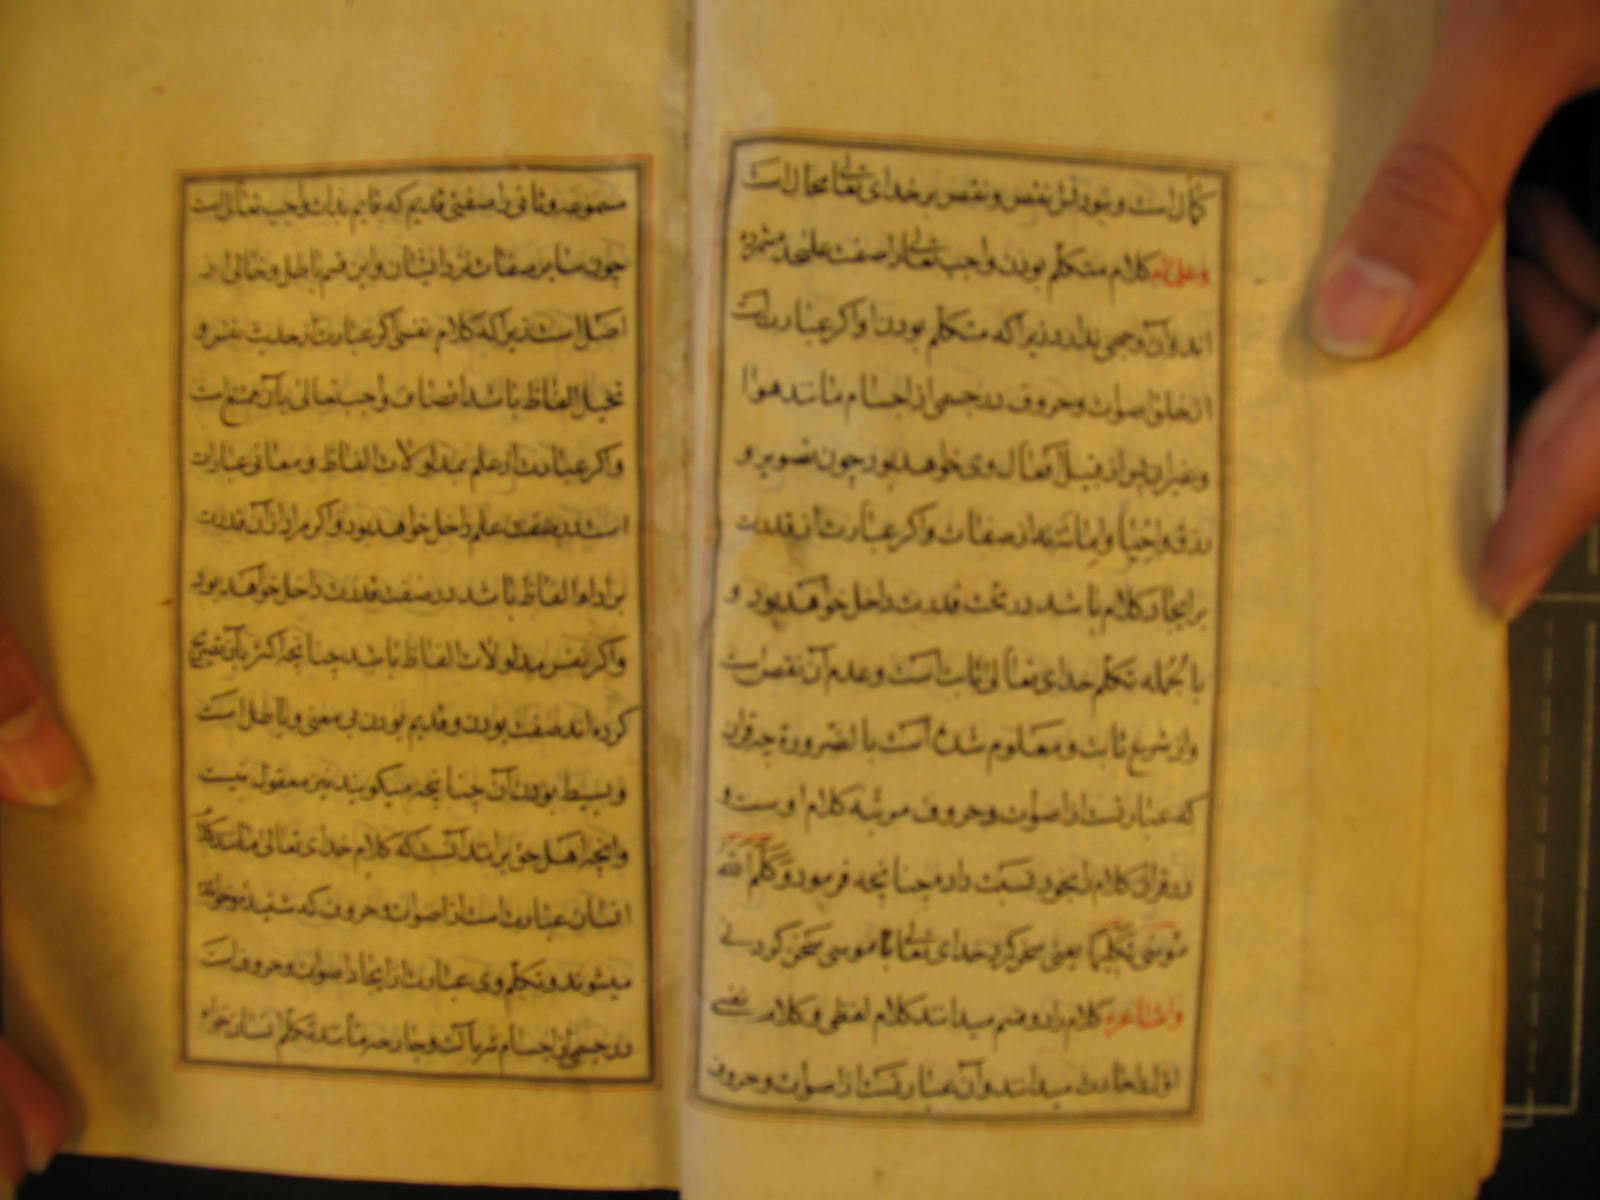 کمال است و نبود آن نقص و نقص بر خدای تعالی محال است
و علمای کلام متکلّم بودن واجب تعالی را صفت علیحده شمرده
اند و آن وجهی ندارد زیرا که متکلّم بودن او اکر عبارت است
از خلق اصوات و حروف در جسمی از اجسام مانند هوا
و غیر آن پس از قبیل افعال وی خواهد بود چون تصویر و
رزق و احیا و اماته نه از صفات و اکر عبارت از قدرت
بر ایجاد کلام باشد در تحت قدرت داخل خواهد بود و
بالجمله تکلّم خدای تعالی ثابت است و عدم آن نقص است
و از شرع ثابت و معلوم شده است بالضرورة چه قرآن
که عبارتست از اصوات و حروف مرتبه کلام اوست و
در قرآن کلام را بخود نسبت داده چنانچه فرموده وَكَلَّمَ اللهُ
مُوسَى تَكْلِيمًا یعنی سخن کرد خدای تعالی با موسی سخن کردنی
و اشاعره کلام را دو قسم میدانند کلام لفظی و کلام نفسی
اوّل را حادث میدانند و آن عبارتست از اصوات و حروف
مسموعه و ثانی را صفتی قدیم که قایم بذات واجب تعالی است
چون سایر صفات نزد ایشان و این قسم باطل و خالی از
اصل است زیرا که کلام نفسی اکر عبارت از حدیث نفس و
تخیل الفاظ باشد اتصاف واجب تعالی بآن ممتنع است
و اکر عبارت از علم بمدلولات الفاظ و معانی عبارات
است در صفت علم داخل خواهد بود و اکر مراد از آن قدرت
بر اداء الفاظ باشد در صفت قدرت داخل خواهد بود
و اکر نفس مدلولات الفاظ باشد چنانچه اکثر بآن تصریح
کرده اند صفت بودن و قدیم بودن بی معنی و باطل است
و بسیط بودن آن چنانچه میکویند نیز معقول نیست
و آنچه اهل حق برانند آنست که کلام خدای تعالی مانند کلام
انسان عبارت است از اصوات و حروف که شنیده و خوانده
میشوند و تکلّم وی عبارت از ایجاد اصوات و حروف است
در جسمی از اجسام نه بآلت و جارحه مانند تکلّم انسان خواه